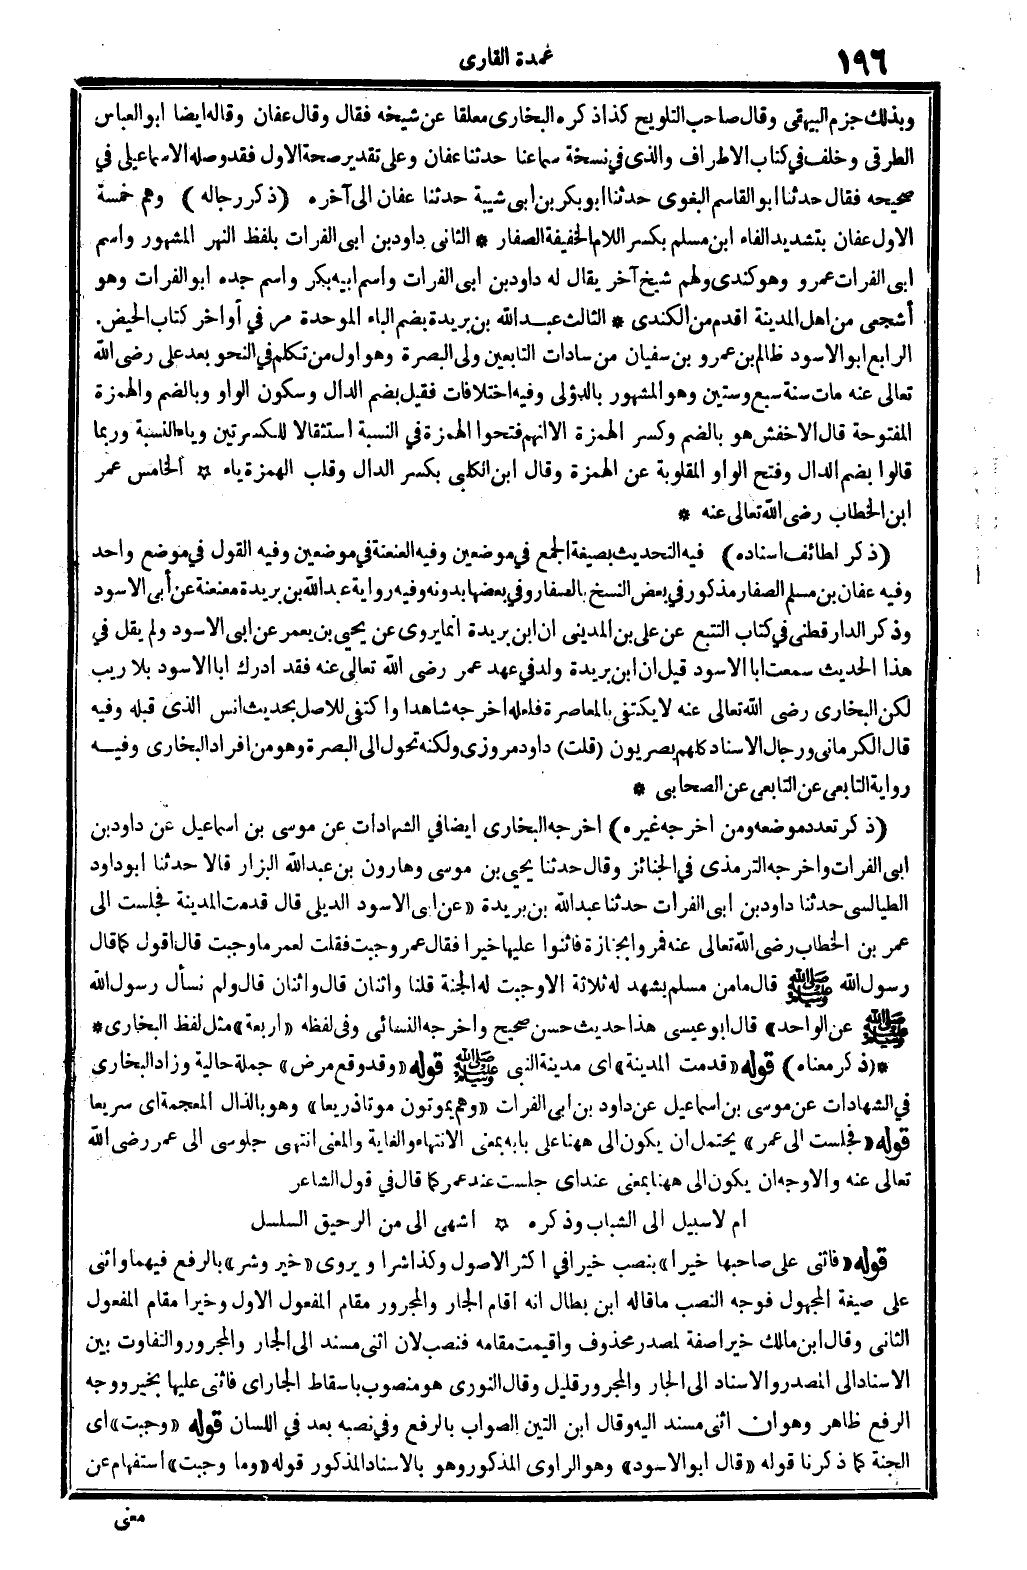 ١٩٦
عمدة القارى
وبذلك جزم البيهقى وقال صاحب التلويح كذا ذكره البخارى معلقا عن شيخه فقال وقال عفان وقاله ايضا ابو العباس
الطرقى وخلف في كتاب الاطراف والذى في نسخة سماعنا حدثنا عفان وعلى تقدير صحة الاول فقد وصله الاسماعيلى في
صحيحه فقال حدثنا ابو القاسم البغوى حدثنا ابو بكر بن ابى شيبة حدثنا عفان الى آخره (ذكر رجاله) وهم خمسة
الاول عفان بتشديد الفاء ابن مسلم بكسر اللام الخفيفة الصفار * الثانى داود بن ابى الفرات بلفظ النهر المشهور واسم
ابى الفرات عمرو وهو كندى ولهم شيخ آخر يقال له داود بن ابى الفرات واسم ابيه بكر واسم جده ابو الفرات وهو
أشجعى من اهل المدينة اقدم من الكندى * الثالث عبد الله بن بريدة بضم الباء الموحدة مر في أواخر كتاب الحيض.
الرابع ابو الاسود ظالم بن عمرو بن سفيان من سادات التابعين ولى البصرة وهو اول من تكلم في النحو بعد على رضى الله
تعالى عنه مات سنة سبع وستين وهو المشهور بالدؤلى وفيه اختلافات فقيل بضم الدال وسكون الواو وبالضم والهمزة
المفتوحة قال الاخفش هو بالضم وكسر الهمزة الا انهم فتحوا الهمزة في النسبة استثقالا للكسرتين وياء النسبة وربما
قالوا بضم الدال وفتح الواو المقلوبة عن الهمزة وقال ابن الكلبى بكسر الدال وقلب الهمزة ياء ☆ الخامس عمر
ابن الخطاب رضى الله تعالى عنه *
(ذكر لطائف اسناده) فيه التحديث بصيغة الجمع في موضعين وفيه العنعنة في موضعين وفيه القول في موضع واحد
وفيه عفان بن مسلم الصفار مذكور في بعض النسخ بالصفار وفي بعضها بدونه وفيه رواية عبد الله بن بريدة معنعنة عن أبى الاسود
وذكر الدارقطنى في كتاب التتبع عن على بن المدينى ان ابن بريدة انما يروى عن يحيى بن يعمر عن ابى الاسود ولم يقل في
هذا الحديث سمعت ابا الاسود قيل ان ابن بريدة ولد في عهد عمر رضى الله تعالى عنه فقد ادرك ابا الاسود بلا ريب
لكن البخارى رضى الله تعالى عنه لا يكتفى بالمعاصرة فلعله اخرجه شاهدا واكتفى للاصل بحديث انس الذى قبله وفيه
قال الكرمانى ورجال الاسناد كلهم بصريون (قلت) داود مروزى ولكنه تحول الى البصرة وهو من افراد البخارى وفيه
رواية التابعى عن التابعى عن الصحابى *
(ذكر تعدد موضعه ومن اخرجه غيره) اخرجه البخارى ايضا في الشهادات عن موسى بن اسماعيل عن داود بن
ابى الفرات واخرجه الترمذى في الجنائز وقال حدثنا يحيى بن موسى وهارون بن عبد الله البزار قالا حدثنا ابو داود
الطيالسى حدثنا داود بن ابى الفرات حدثنا عبد الله بن بريدة «عن ابى الاسود الديلى قال قدمت المدينة فجلست الى
عمر بن الخطاب رضى الله تعالى عنه فمروا بجنازة فاثنوا عليها خيرا فقال عمر وجبت فقلت لعمر ما وجبت قال اقول كما قال
رسول الله ﷺ قال ما من مسلم يشهد له ثلاثة الا وجبت له الجنة قلنا واثنان قال واثنان قال ولم نسأل رسول الله
ﷺ عن الواحد» قال ابو عيسى هذا حديث حسن صحيح واخرجه النسائى وفى لفظه «اربعة» مثل لفظ البخارى *
*(ذكر معناه) قوله «قدمت المدينة» اى مدينة النبى ﷺ قوله «وقد وقع مرض» جملة حالية وزاد البخارى
في الشهادات عن موسى بن اسماعيل عن داود بن ابى الفرات «وهم يموتون موتا ذريعا» وهو بالذال المعجمة اى سريعا
قوله «فجلست الى عمر» يحتمل ان يكون الى ههنا على بابه بمعنى الانتهاء والغاية والمعنى انتهى جلوسى الى عمر رضى الله
تعالى عنه والاوجه ان يكون الى ههنا بمعنى عند اى جلست عند عمر كما قال في قول الشاعر
ام لا سبيل الى الشباب وذكره ☆ اشهى الى من الرحيق السلسل
قوله «فاثنى على صاحبها خيرا» بنصب خيرا في اكثر الاصول وكذا شرا ويروى «خير وشر» بالرفع فيهما واثنى
على صيغة المجهول فوجه النصب ما قاله ابن بطال انه اقام الجار والمجرور مقام المفعول الاول وخيرا مقام المفعول
الثانى وقال ابن مالك خيرا صفة لمصدر محذوف واقيمت مقامه فنصب لان اثنى مسند الى الجار والمجرور والتفاوت بين
الاسناد الى المصدر والاسناد الى الجار والمجرور قليل وقال النورى هو منصوب باسقاط الجار اى فاثنى عليها بخير ووجه
الرفع ظاهر وهو ان اثنى مسند اليه وقال ابن التين الصواب بالرفع وفي نصبه بعد في اللسان قوله «وجبت» اى
الجنة كما ذكرنا قوله «قال ابو الاسود» وهو الراوى المذكور وهو بالاسناد المذكور قوله «وما وجبت» استفهام عن
معنى